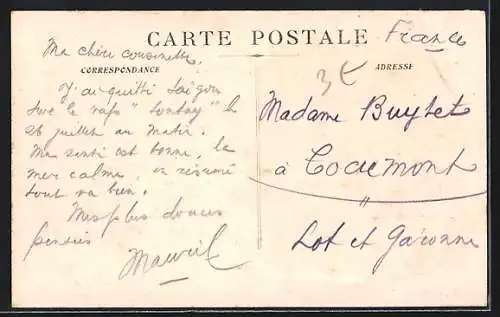 CARTE POSTALE
France
CORRESPONDANCE
ADRESSE
3€
Ma chère cousinette,
J'ai quitté Saïgon
sur le "vapr" "Sontay" le
26 juillet au matin.
Ma santé est bonne, la
mer calme, en résumé
tout va bien.
Mes plus douces
pensées
Madame Buytet
à Cocumont
Lot et Garonne